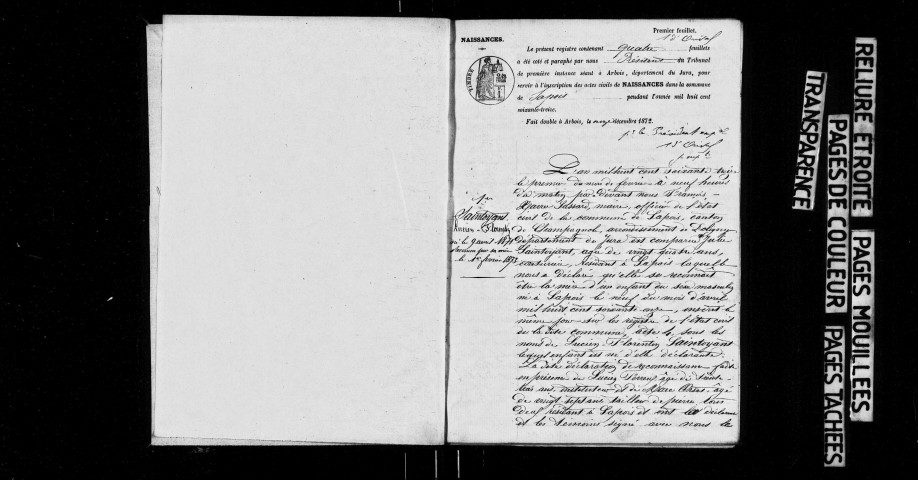 Premier feuillet.
NAISSANCES.
Le présent registre contenant quatre feuillets
a été coté et paraphé par nous Président du Tribunal
de première instance séant à Arbois, département du Jura, pour
servir à l'inscription des actes civils de NAISSANCES dans la commune
de Sapois pendant l'année mil huit cent
soixante-treize.
Fait double à Arbois, le onze décembre 1872.
TIMBRE
pr le Président
L'an mil huit cent soixante treize
le premier du mois de fevrier à neuf heures
du matin par devant nous François
maire, officier de l'état
civil de la commune de Sapois, canton
de Champagnole, arrondissement de Poligny
département du Jura est comparue Julie
Saintoyant, agée de vingt quatre ans,
couturière, résidant à Sapois laquelle
nous a déclaré qu'elle se reconnait
être la mère d'un enfant du sexe masculin
né à Sapois le neuf du mois d'avril
mil huit cent soixante onze, inscrit le
même jour sur les registres de l'état civil
de la dite commune, acte 4, sous les
noms de Lucien Florentin Saintoyant
lequel enfant est né d'elle déclarante.
La dite déclaration de reconnaissance faite
en présence de Lucien âgé de trente
ans instituteur et de Marc agé
de vingt sept ans tailleur de pierre tous
deux résidant à Sapois et ont la déclarante
et les témoins signé avec nous le
1er
Saintoyant
Lucien-Florentin
né le 9 avril 1871
reconnu par sa mère
le 1er fevrier 1873
RELIURE ÉTROITE
TRANSPARENCE
PAGES DE COULEUR
PAGES MOUILLÉES
PAGES TACHÉES